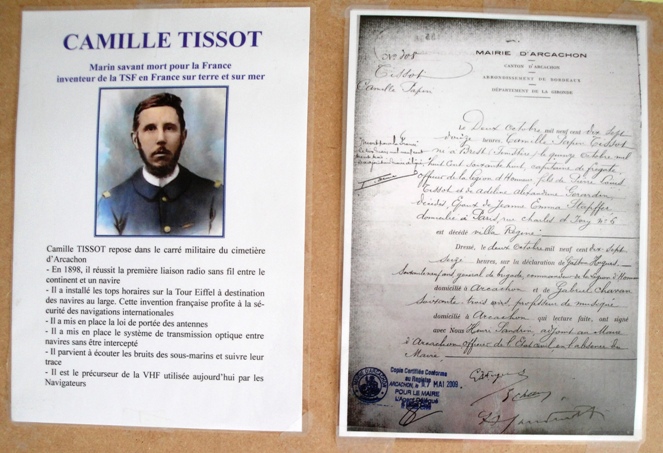 CAMILLE TISSOT
Marin savant mort pour la France
inventeur de la TSF en France sur terre et sur mer
Camille TISSOT repose dans le carré militaire du cimetière
d'Arcachon
- En 1898, il réussit la première liaison radio sans fil entre le
continent et un navire
- Il a installé les tops horaires sur la Tour Eiffel à destination
des navires au large. Cette invention française profite à la sé-
curité des navigations internationales
- Il a mis en place la loi de portée des antennes
- Il a mis en place le système de transmission optique entre
navires sans être intercepté
- Il parvient à écouter les bruits des sous-marins et suivre leur
trace
- Il est le précurseur de la VHF utilisée aujourd'hui par les
Navigateurs
MAIRIE D'ARCACHON
CANTON D'ARCACHON
ARRONDISSEMENT DE BORDEAUX
DÉPARTEMENT DE LA GIRONDE
Tissot
Camille Papin
Le Deux Octobre mil neuf cent dix sept
heures, Camille Papin Tissot
né à Brest (Finistère) le quinze Octobre mil
huit cent soixante huit, capitaine de frégate
officier de la Légion d'Honneur fils de Pierre
Tissot et de Adeline Alexandrine
décédés, Epoux de Jeanne Emma
domicilié à Paris, rue Charles
est décédé villa Régina
Dressé, le deux Octobre mil neuf cent dix sept
seize heures, sur la déclaration de Gaston
général de brigade, commandeur de la Légion d'Honneur
domicilié à Arcachon et de Gabriel
soixante trois ans, professeur de musique
domicilié à Arcachon qui lecture faite, ont signé
avec Nous Henri adjoint au Maire
d'Arcachon officier de l'Etat civil en l'absence du
Maire
Copie Certifiée Conforme
au Registre
ARCACHON, le 7 MAI 2009
POUR LE MAIRE
L'Agent Délégué